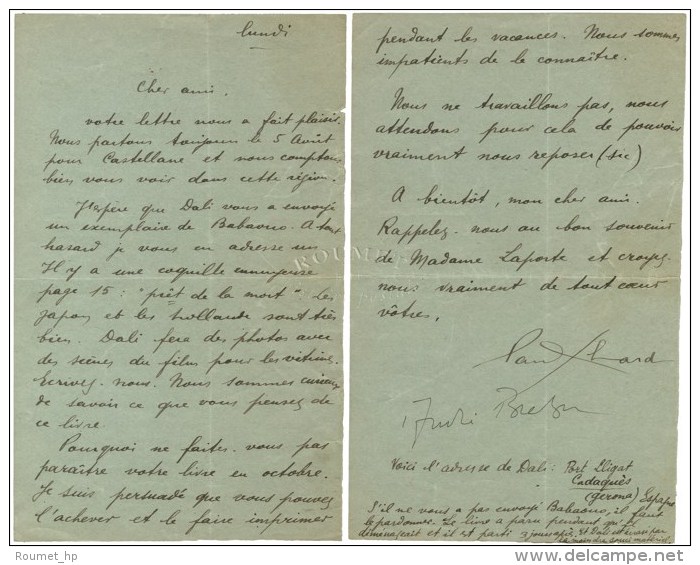 lundi
Cher ami.
votre lettre nous a fait plaisir.
Nous partons toujours le 5 Août
pour Castellane et nous comptons
bien vous voir dans cette région.
J'espère que Dali vous a envoyé
un exemplaire de Babaouo. A tout
hasard je vous en adresse un
Il y a une coquille ennuyeuse
page 15 : "prêt de la mort" Les
Japon et les Hollande sont très
bien. Dali fera des photos avec
des scènes du film pour les vitrines.
Ecrivez-nous. Nous sommes curieux
de savoir ce que vous pensez de
ce livre.
Pourquoi ne faites-vous pas
paraître votre livre en octobre.
Je suis persuadé que vous pouvez
l'achever et le faire imprimer
pendant les vacances. Nous sommes
impatients de le connaître.
Nous ne travaillons pas, nous
attendons pour cela de pouvoir
vraiment nous reposer (sic)
A bientôt, mon cher ami.
Rappelez-nous au bon souvenir
de Madame Laporte et croyez-
nous vraiment de tout cœur
vôtres,
Paul Eluard
André Breton
Voici l'adresse de Dali : Port Lligat
Cadaquès
(gerona) Espagne
S'il ne vous a pas envoyé Babaouo, il faut
le pardonner. Le livre a paru pendant qu'il
déménageait et il est parti 3 jours après. et Dali
ROUMET
Roumet_hp
www.delcampe.net